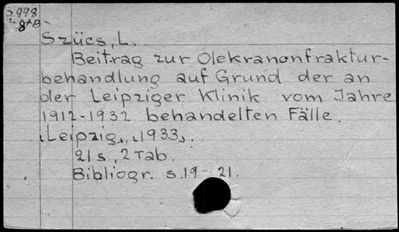 2998
Szücs, L.
Beitrag zur Olekranonfraktur-
behandlung auf Grund der an
der Leipziger Klinik vom Jahre
1912-1932 behandelten Fälle.
Leipzig, 1933.
21 s., 2 Tab.
Bibliogr. s. 19-21.